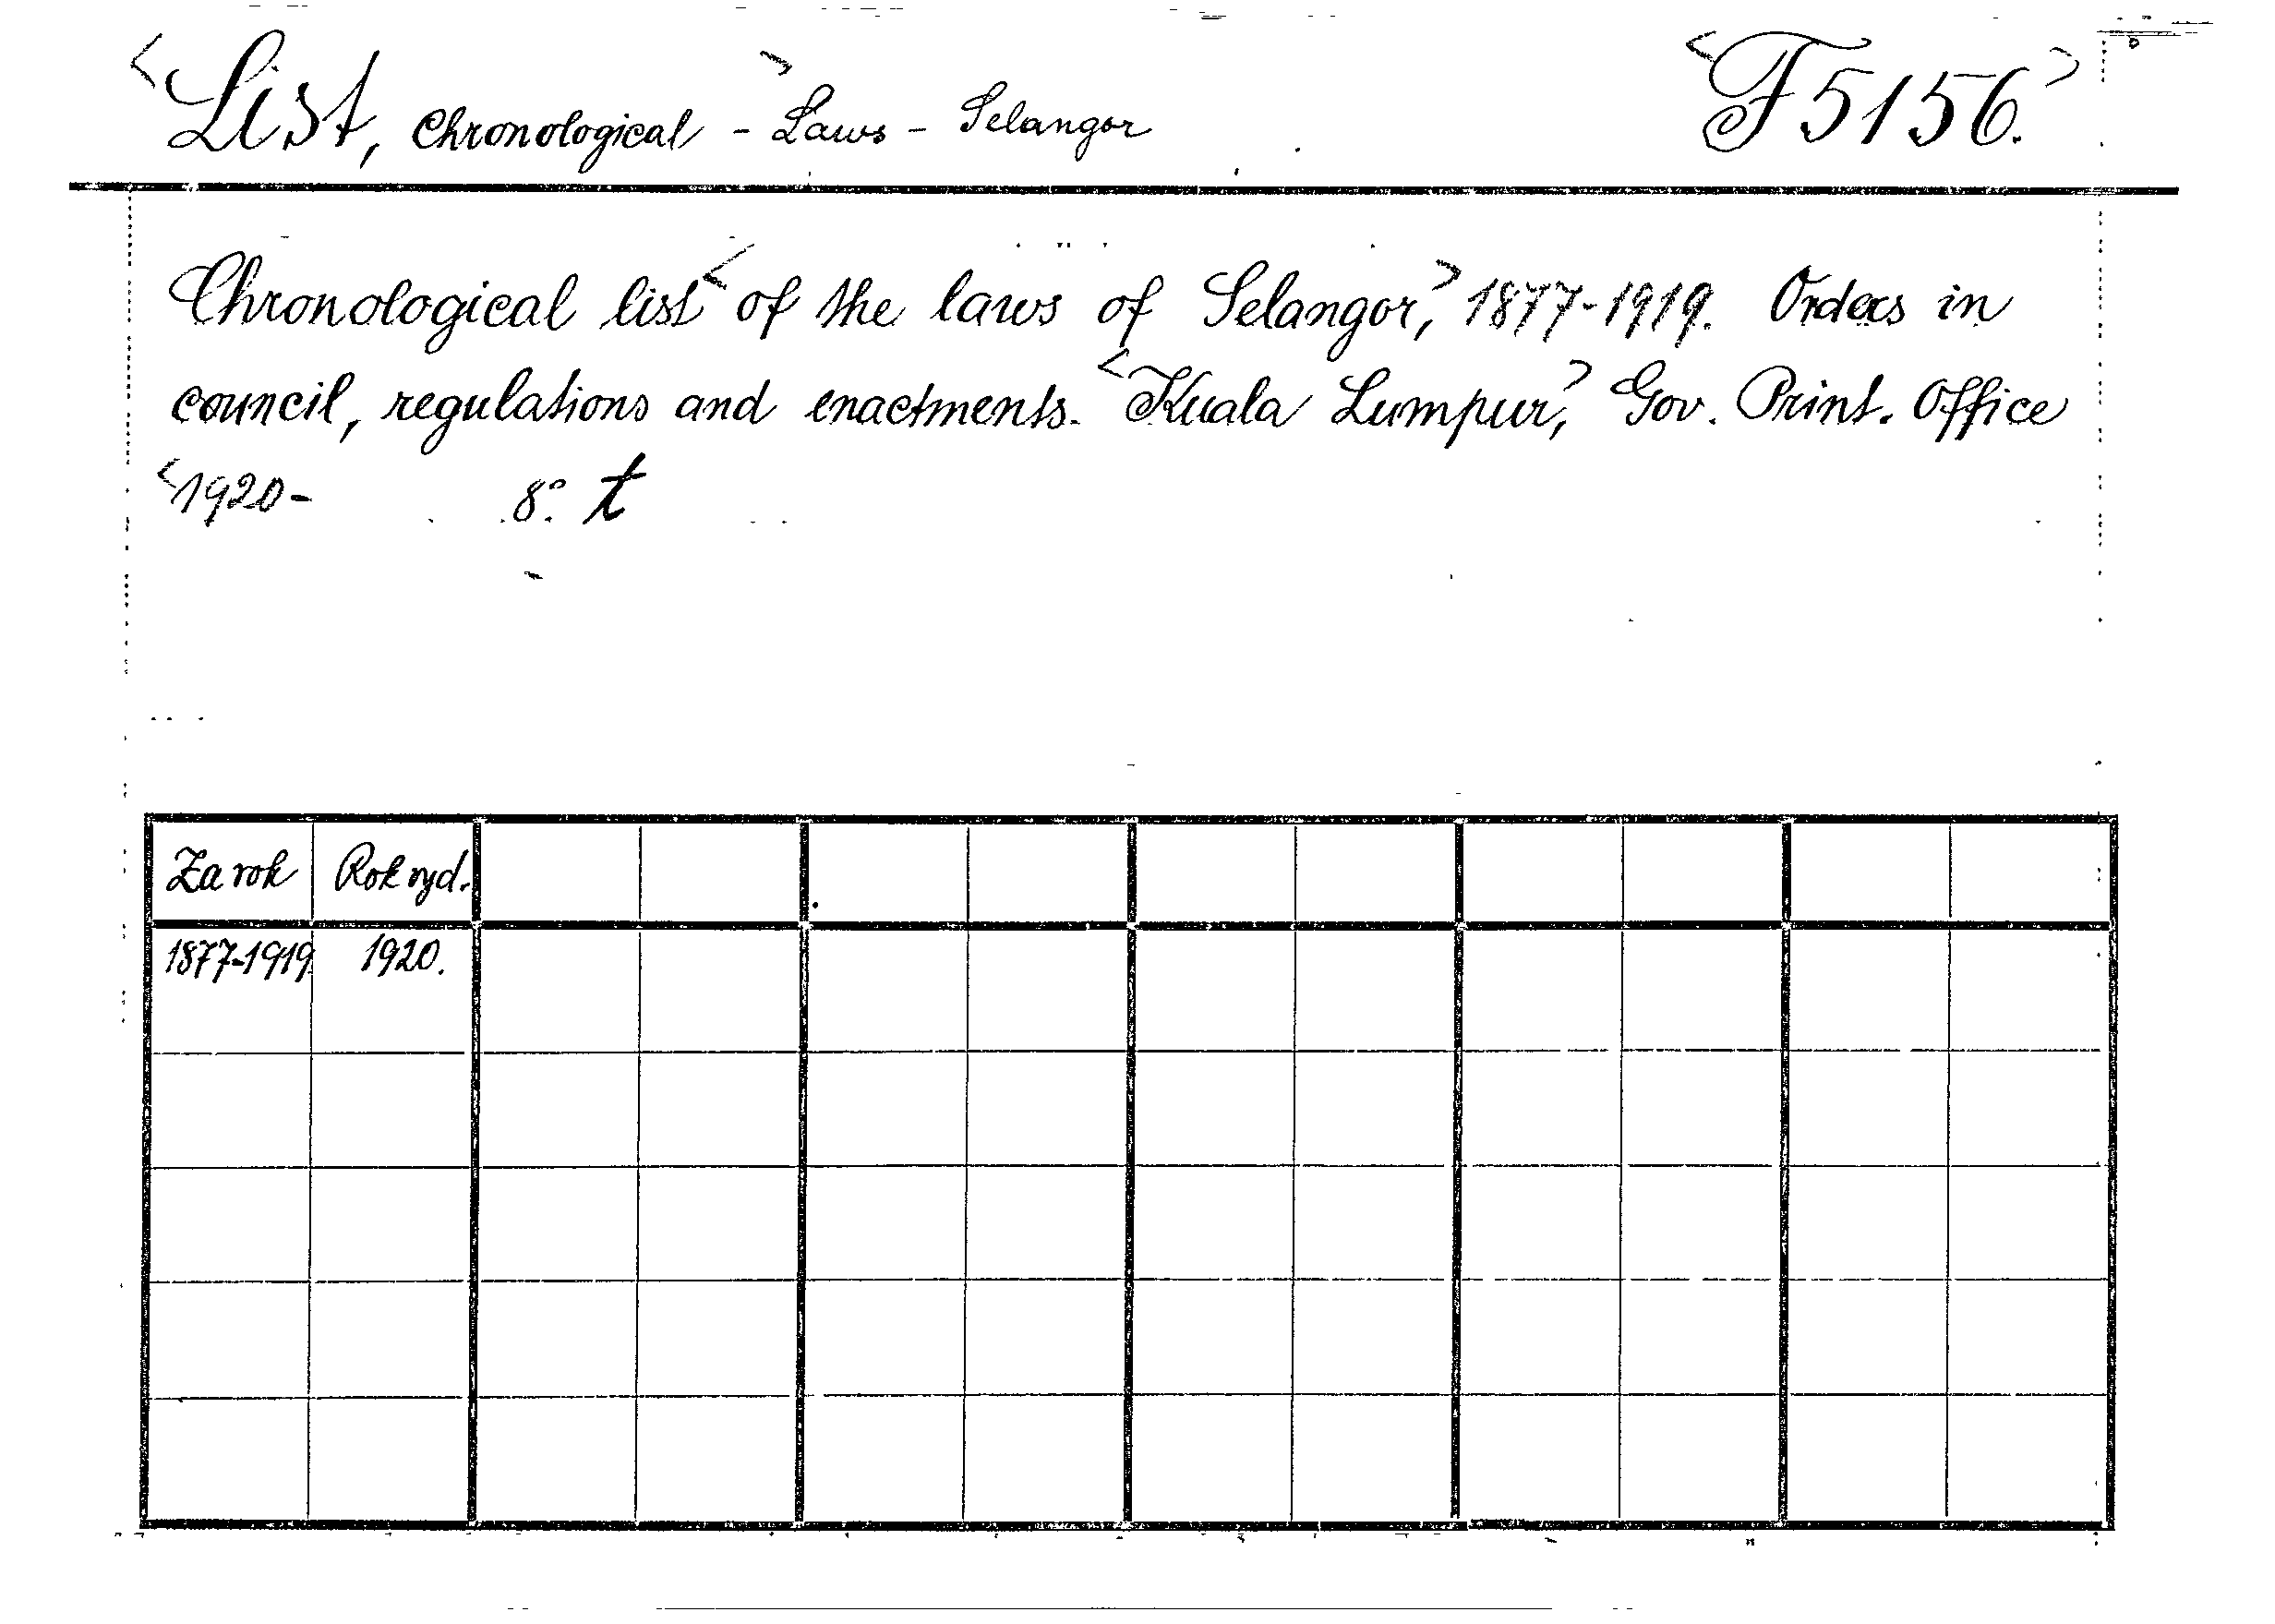 <List, Chronological> - Laws - Selangor <F5156.>
Chronological list <of the laws of Selangor,> 1877-1919. Orders in
council, regulations and enactments. <Kuala Lumpur,> Gov. Print. Office
<1920- 8°. t
Za rok Rok vyd.
1877-1919 1920.